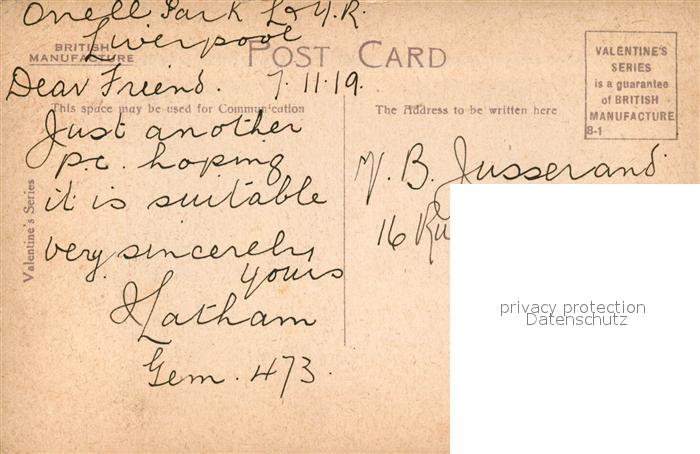 Orrell Park L & Y. R.
Liverpool
BRITISH
MANUFACTURE
POST CARD
Dear Friend. 7.11.19.
This space may be used for Communication
Just another
p.c. hoping
it is suitable
very sincerely
yours
Latham
Gem. 473.
Valentine's Series
The Address to be written here
VALENTINE'S
SERIES
is a guarantee
of BRITISH
MANUFACTURE
8-1
B. Jusserand
16 Ru
privacy protection
Datenschutz